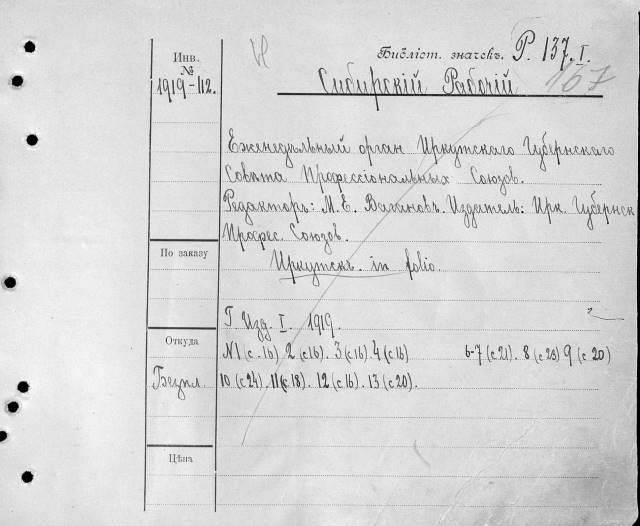 Инв. №
1919-112.
Библіот. значекъ. Р. 137. I.
167
Сибирскій Рабочій
Еженедѣльный орган Иркутскаго Губернскаго
Совѣта Профессіональных Союзов.
Редакторъ: М. Е. Вагиновъ. Издатель: Ирк. Губернск
Професс. Союзов.
По заказу
Иркутскъ. in folio.
Г. Изд. I. 1919.
Откуда
№1 (с. 16) 2 (с16). 3 (с16) 4 (с16) 6-7 (с21). 8 (с23) 9 (с 20)
Безпл. 10 (с24). 11 (с18). 12 (с16). 13 (с20).
Цѣна